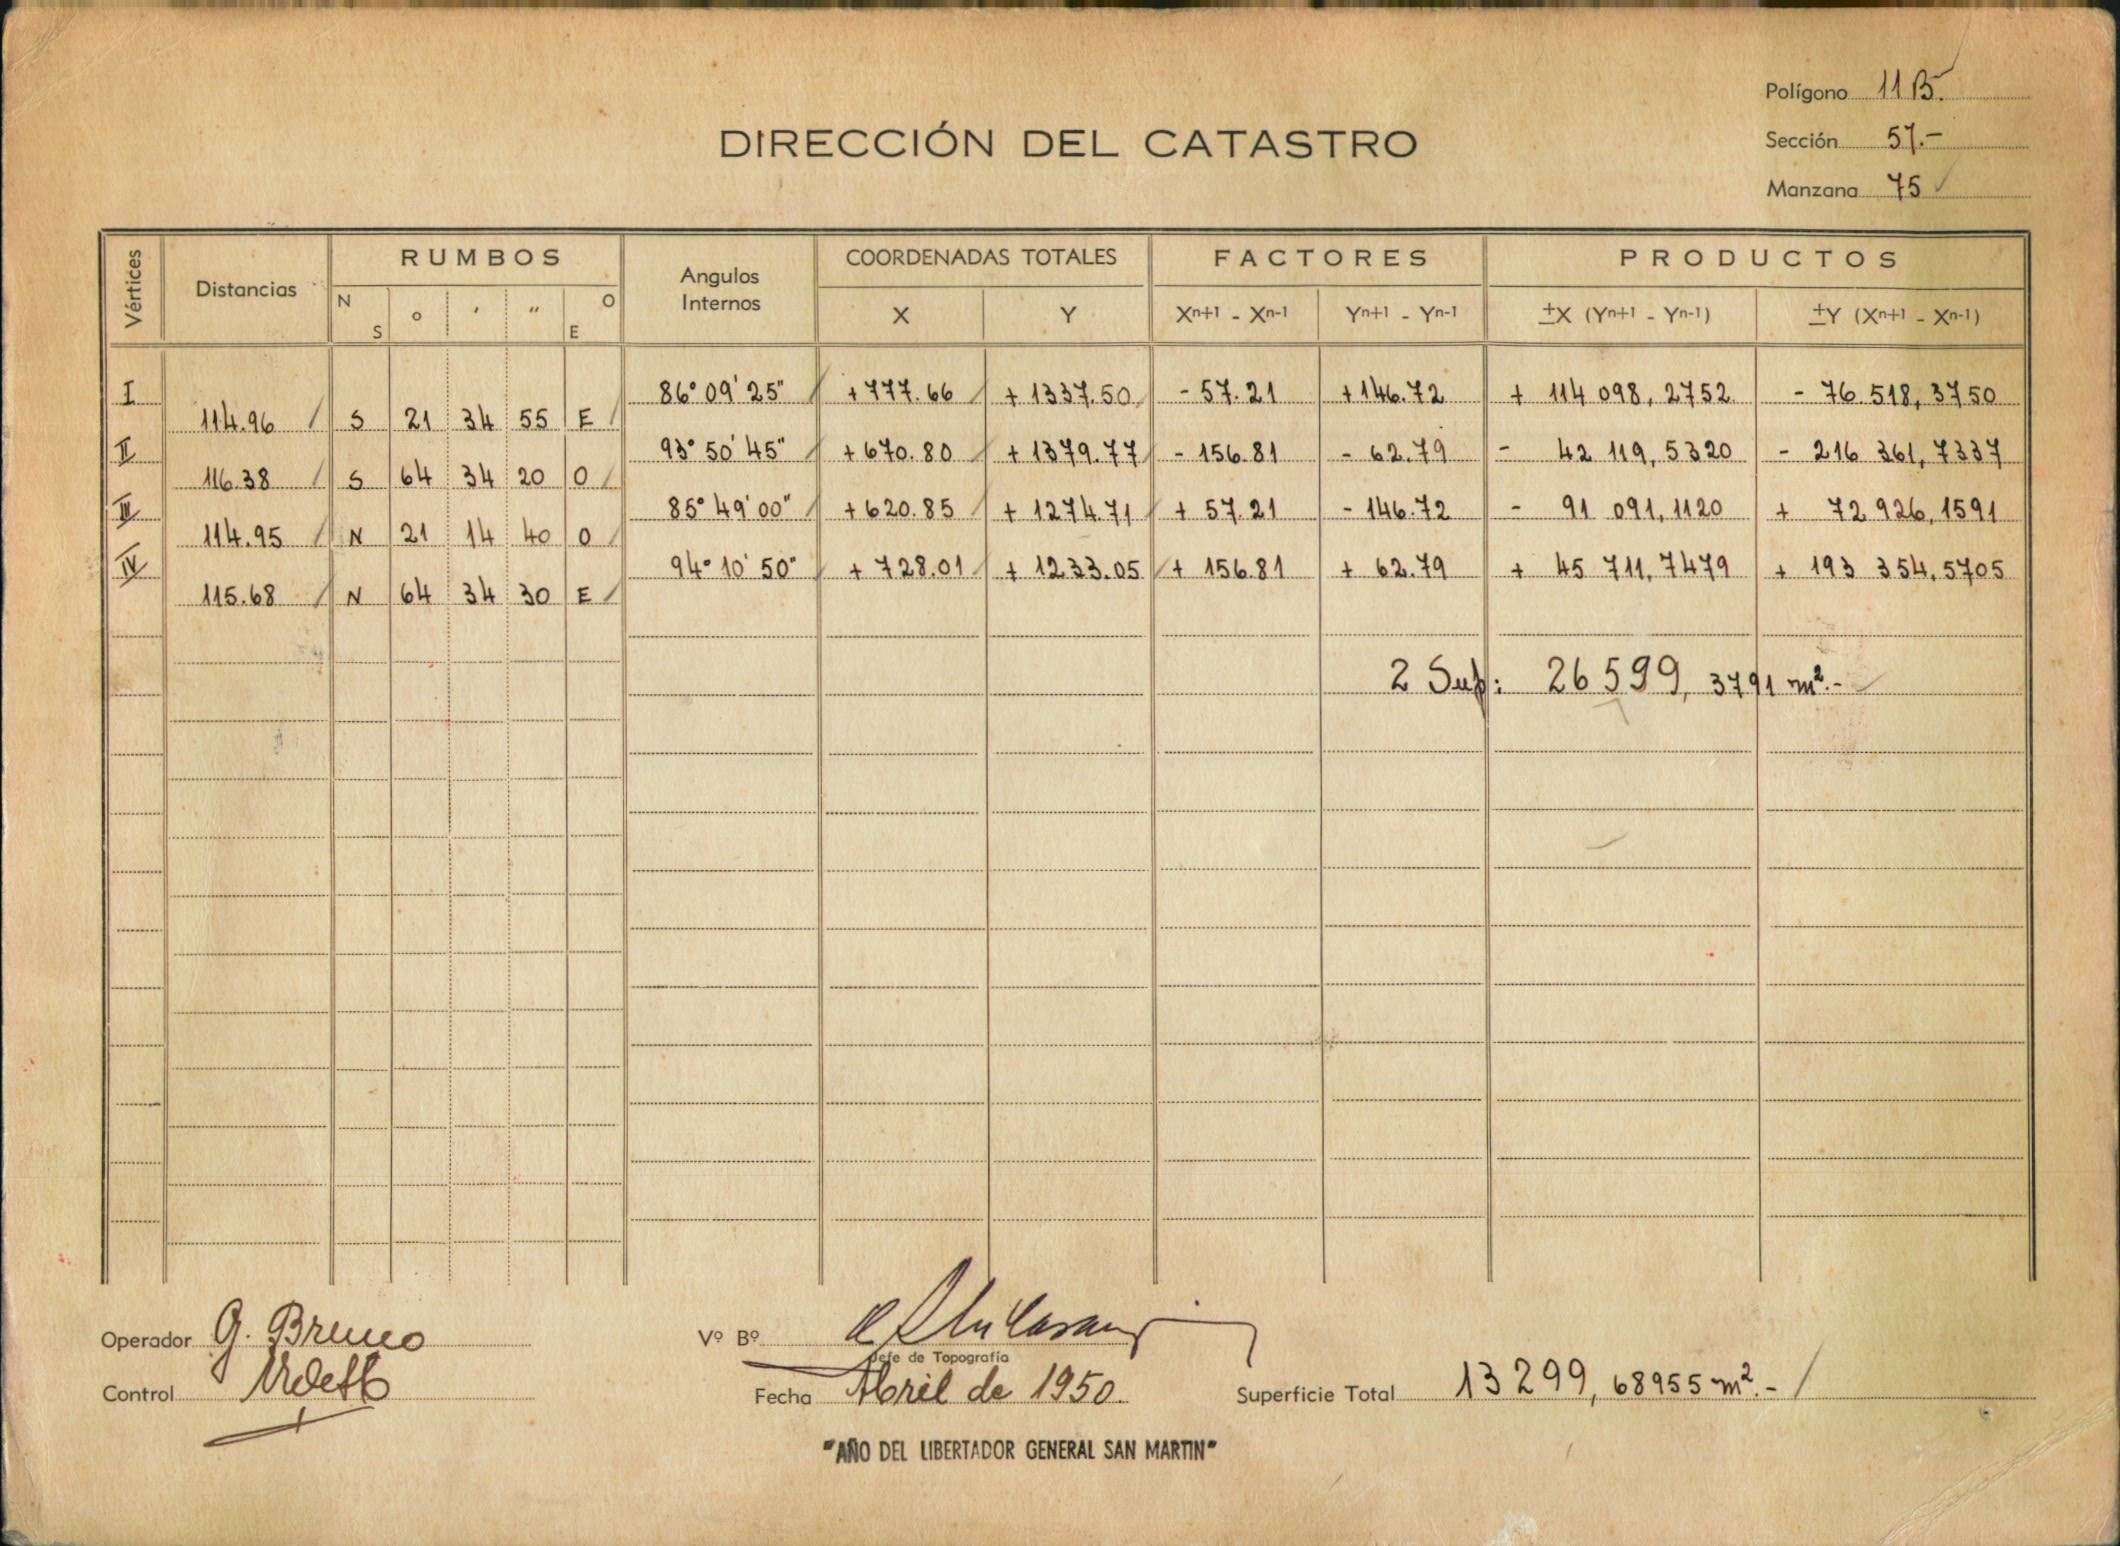 Polígono 11 B.
DIRECCIÓN DEL CATASTRO
Sección 57.-
Manzana 75
Vértices Distancias RUMBOS Angulos Internos COORDENADAS TOTALES FACTORES PRODUCTOS
N S o ' " O E X Y Xn+1 - Xn-1 Yn+1 - Yn-1 ±X (Yn+1 - Yn-1) ±Y (Xn+1 - Xn-1)
I 86° 09' 25" +777.66 +1337.50 -57.21 +146.72 + 114 098,2752 - 76 518,3750
114.96 S 21 34 55 E
II 93° 50' 45" +670.80 +1379.77 -156.81 -62.79 - 42 119,5320 - 216 361,7337
116.38 S 64 34 20 O
III 85° 49' 00" +620.85 +1274.71 +57.21 -146.72 - 91 091,1120 + 72 926,1591
114.95 N 21 14 40 O
IV 94° 10' 50" +728.01 +1233.05 +156.81 +62.79 + 45 711,7479 + 193 354,5705
115.68 N 64 34 30 E
2 Sup: 26 599,3791 m².-
Operador G. Bruno
Vº Bº
Jefe de Topografía
Control
Fecha Abril de 1950.
Superficie Total 13 299,68955 m².-
"AÑO DEL LIBERTADOR GENERAL SAN MARTIN"